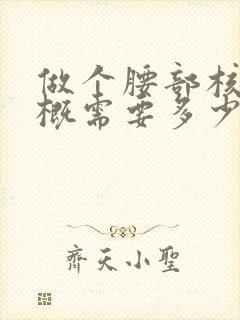 做个腰部核
概需要多少
齊天小聖